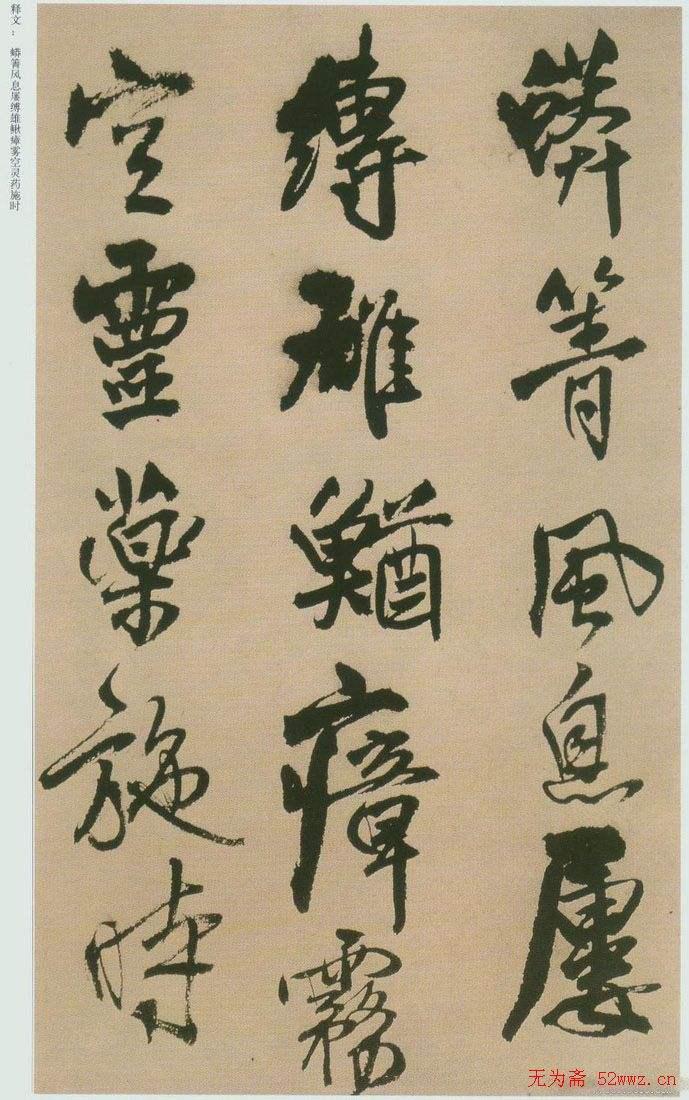 蟒箐風息屢
縛雄鰌瘴霧
空靈藥施時
释文： 蟒箐风息屡缚雄鳅瘴雾空灵药施时
无为斋 52wwz.cn